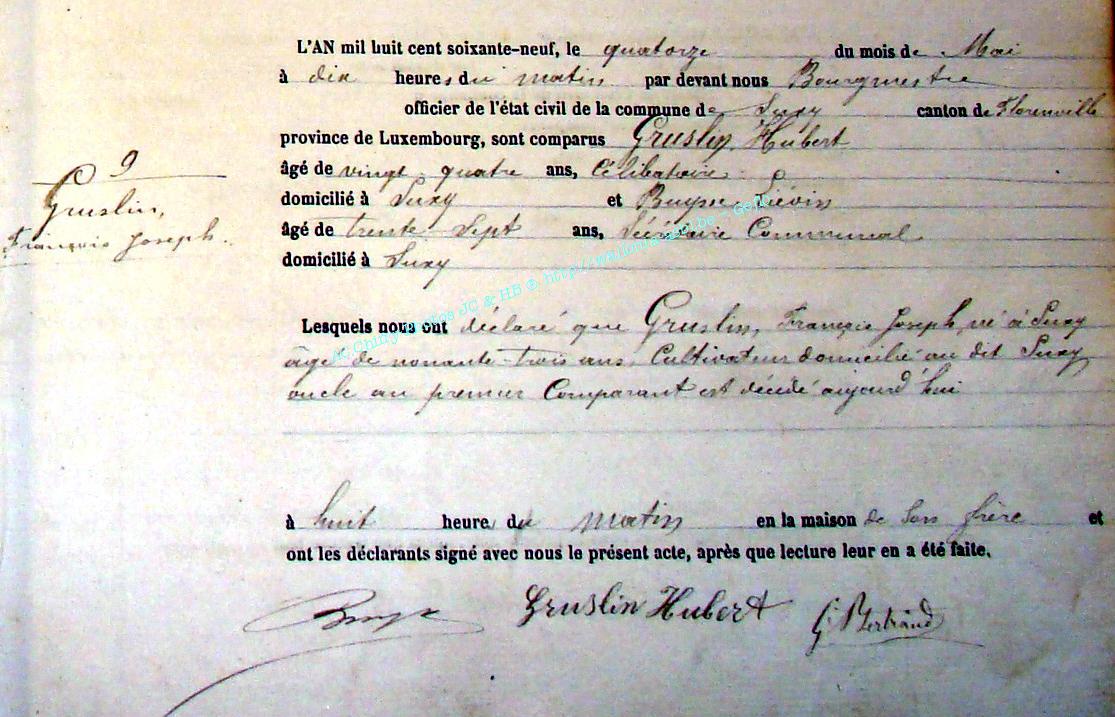 L'AN mil huit cent soixante-neuf, le quatorze du mois de Mai
à dix heures du matin par devant nous Bourgmestre
officier de l'état civil de la commune de Suxy canton de Florenville
province de Luxembourg, sont comparus Gruslin Hubert
âgé de vingt quatre ans, Célibataire
domicilié à Suxy et Buysse Liévin
âgé de trente Sept ans, Sécrétaire Communal
domicilié à Suxy
9
Gruslin,
François Joseph.
Lesquels nous ont déclaré que Gruslin, François Joseph, né à Suxy
âgé de nonante-trois ans, Cultivateur domicilié au dit Suxy
oncle au premier Comparant est décédé aujourd'hui
à huit heure du matin en la maison de son frère et
ont les déclarants signé avec nous le présent acte, après que lecture leur en a été faite.
Gruslin Hubert
G Bertrand
Chiny photos JC & HB © http://